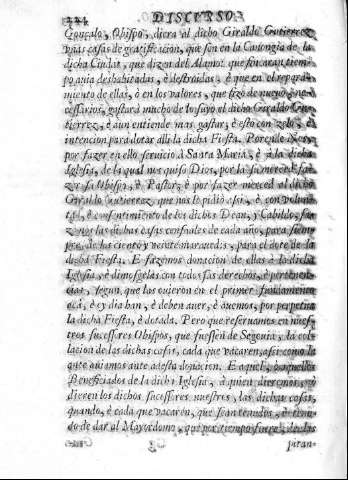 224 DISCURSO
Gonçalo, Obispo, diera al dicho Giraldo Gutierrez
vnas casas de gratificacion, que son en la Canongia de la
dicha Ciudat, que dizen del Alamo: que fincaran tiem-
po auia deshabitadas, è destruidas: è que en el repara-
miento de ellas, è en los valores, que fizo de nueuo, ne-
cessarios, gastarà mucho de lo suyo el dicho Giraldo Gu-
tierrez, è aun entiende mas gastar, è esto con zelo, è
intencion para dotar alli la dicha Fiesta. Porende Nos,
por fazer en ello seruicio à Santa Maria, è à la dicha
Iglesia, de la qual nos quiso Dios, por la su merced fa-
zer su Obispo, è Pastor; è por fazer merced al dicho
Giraldo Gutierrez, que nos lo pidiò assi, è con volun-
tad, è consentimiento de los dichos Dean, y Cabildo, fa-
zemos las dichas casas censuales de cada año, para siem-
pre, de las ciento y veinte marauedis, para el dote de la
dicha Fiesta. E fazemos donacion de ellas à la dicha
Iglesia, è dimosgelas con todos sus derechos, è pertenen-
cias, segun, que las ouieron en el primer fundamento
acà, è oy dia han, è deben auer, è auemos, por perpetua
la dicha Fiesta, è dotada. Pero que reseruemos en nues-
tros sucessores Obispos, que fuessen de Segouia, la co-
lacion de las dichas casas, cada que vacaren, assi como la
ante auiamos ante desta donacion. E aquel, ò aquellos
Beneficiados de la dicha Iglesia, à quien dieremos, ò
dieren los dichos sucessores nuestros, las dichas casas,
quando, è cada que vacaren, que sean tenudos, è tenu-
do de dar al Mayordomo, que por tiempo fuere, de las
pitan-